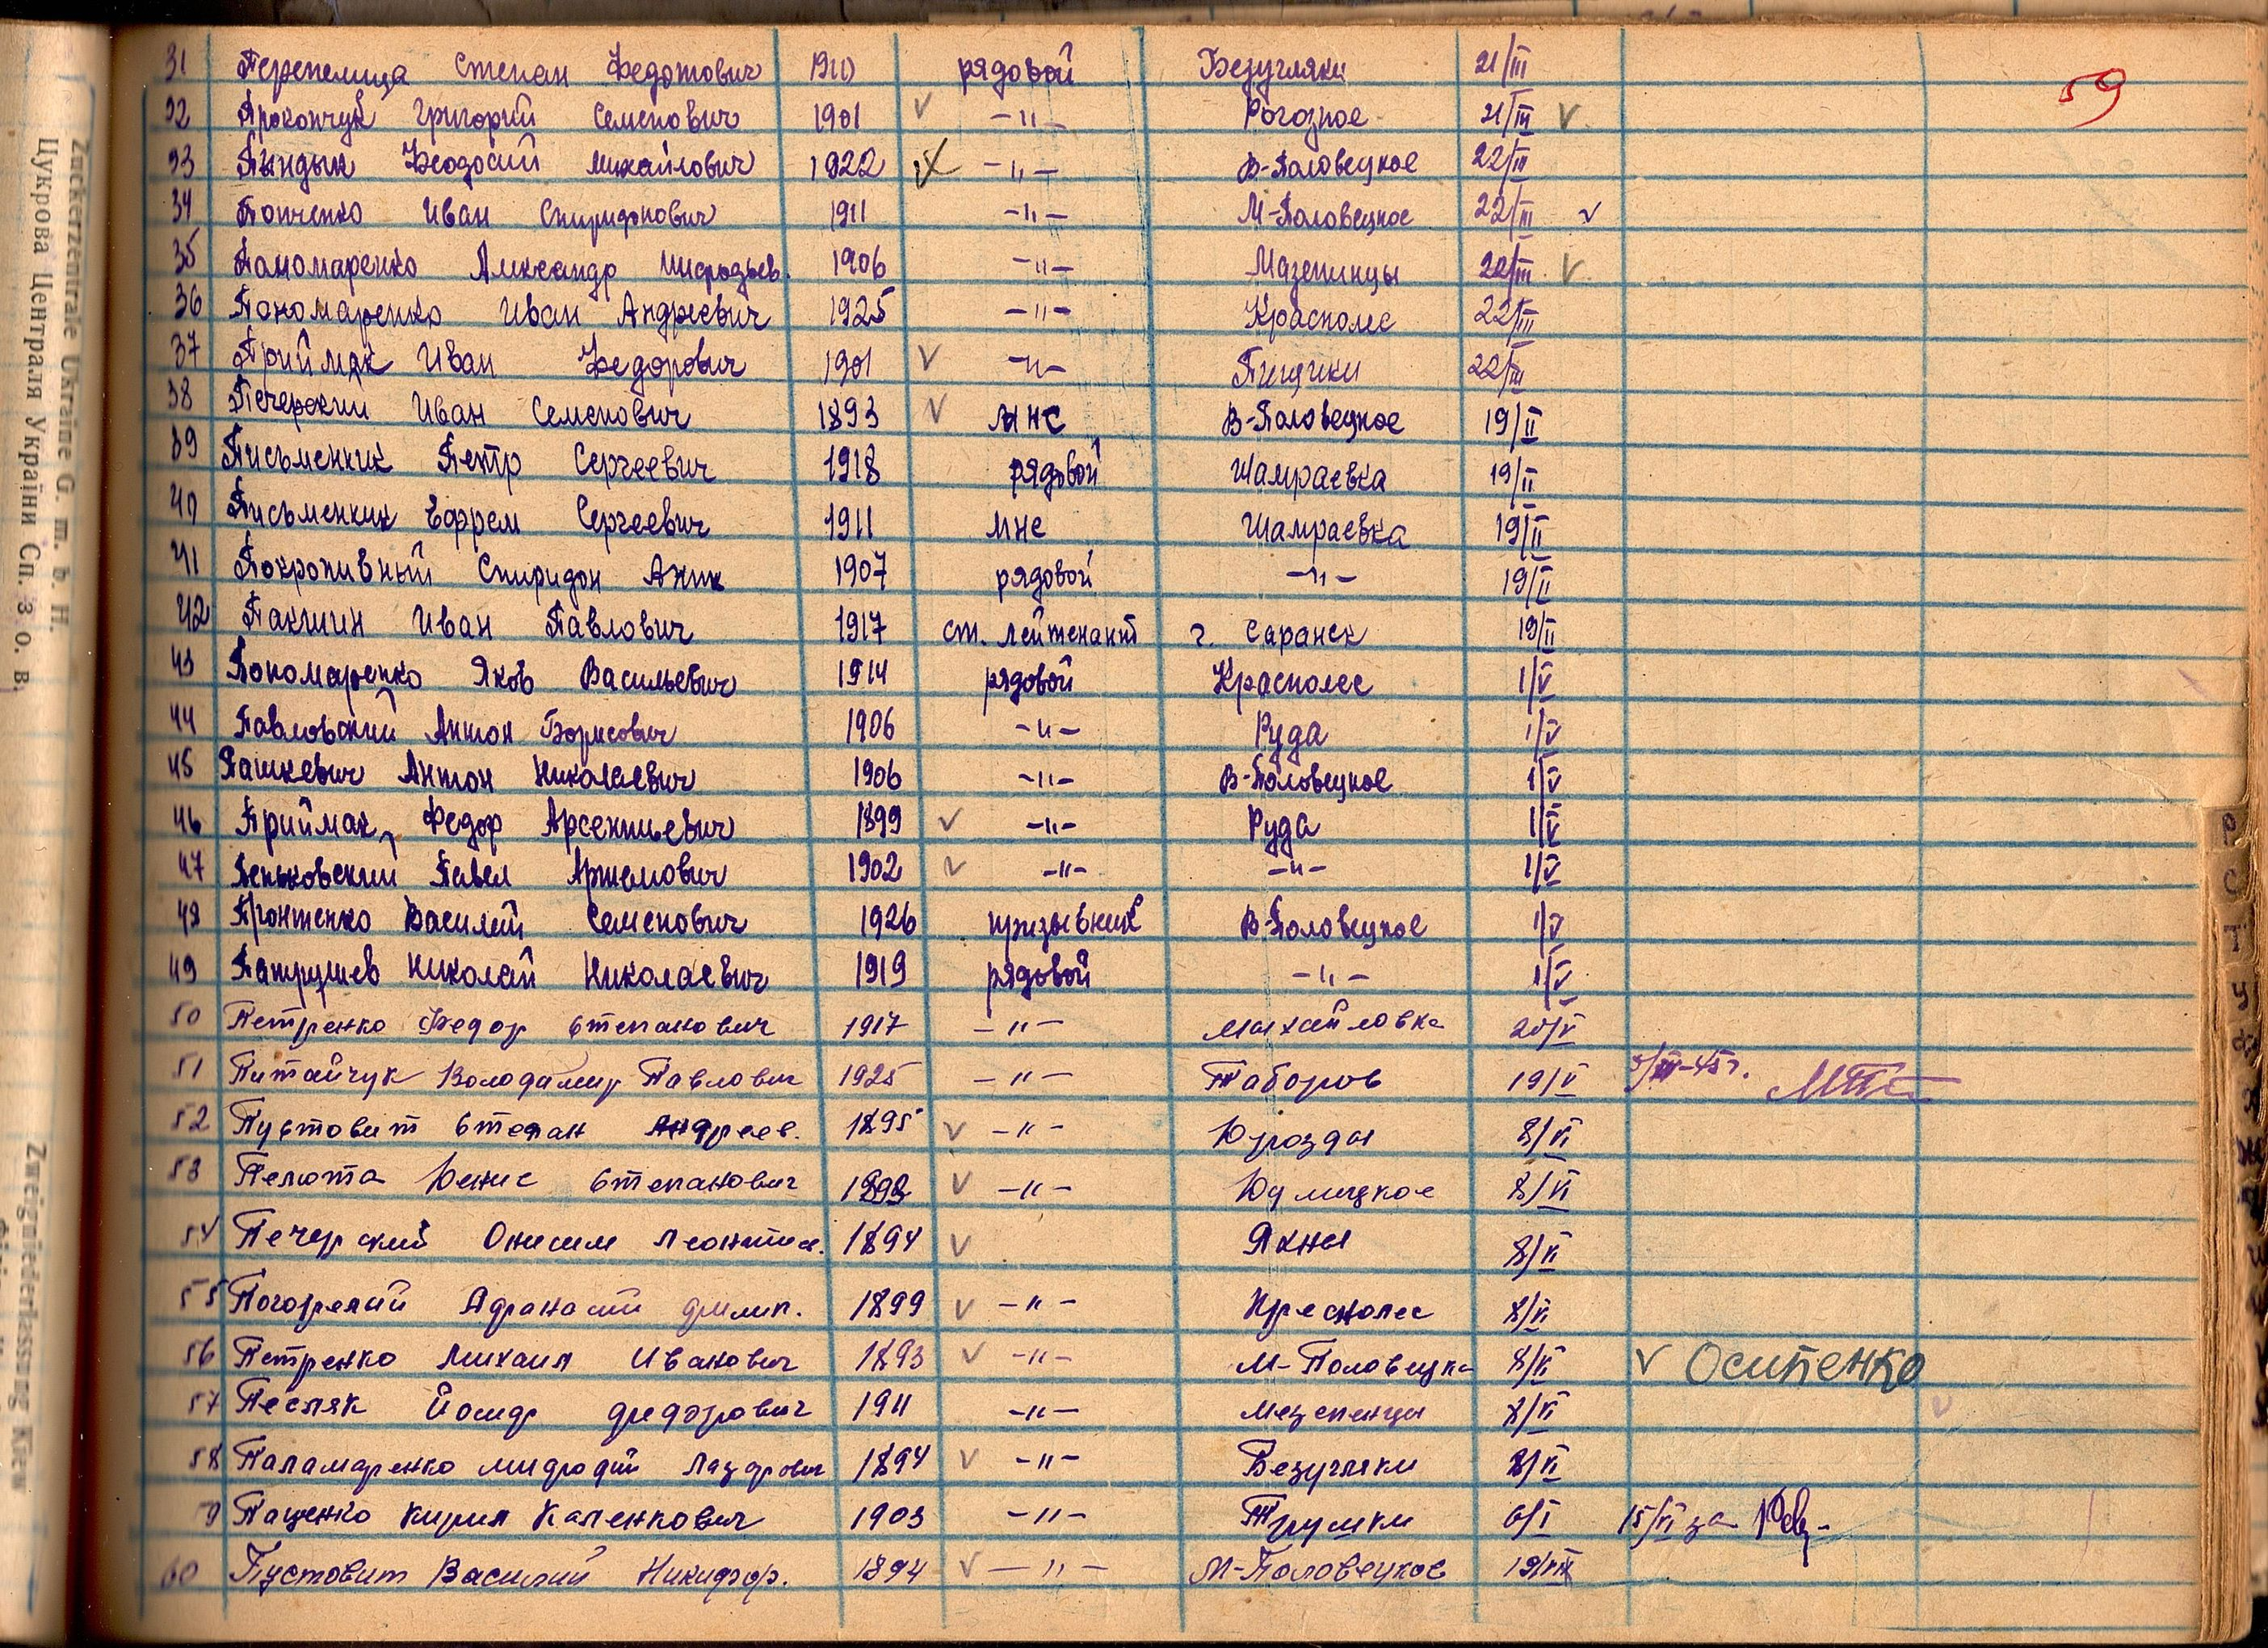 59
31 Перепелица Степан Федотович рядовой Безугляки 21/III
32 Прокончук Григорий Семенович 1901 √ -"- Рогозное 21/III √
33 Пындык Феодосий Михайлович 1922 -"- В-Половецкое 22/III
34 Попченко Иван Спиридонович 1911 -"- М-Половецкое 22/III √
35 Пономаренко Александр 1906 -"- Мазепинцы 22/III √
36 Пономаренко Иван Андреевич 1925 -"- Красполес 22/III
37 Приймак Иван Федорович 1901 √ -"- Пищики 22/III
38 Печерский Иван Семенович 1893 √ МНС В-Половецкое 19/II
39 Письменник Петр Сергеевич 1918 рядовой Шамраевка 19/II
40 Письменник Ефрем Сергеевич 1911 мнс Шамраевка 19/II
41 Покропивный Спиридон 1907 рядовой -"- 19/II
42 Пакшин Иван Павлович 1917 ст. лейтенант г. Саранск 19/II
43 Пономаренко Яков Васильевич 1914 рядовой Красполес 1/V
44 Павловский Антон Борисович 1906 -"- Руда 1/V
45 Пашкевич Антон Николаевич 1906 -"- В-Половецкое 1/V
46 Приймак Федор Арсентьевич 1899 √ -"- Руда 1/V
47 Пеньковский Павел Артемович 1902 √ -"- -"- 1/V
48 Пронтенко Василий Семенович 1926 призывник В-Половецкое 1/V
49 Патрушев Николай Николаевич 1919 рядовой -"- 1/V
50 Петренко Федор Степанович 1917 -"- Михайловка 20/V
51 Питайчук Володамир Павлович 1925 -"- Таборов 19/V
52 Пустовит Степан Андреев. 1895 √ -"- Юрозды 8/VI
53 Пелюта Юенис Степанович √ -"- 8/VI
54 Печерский Онисим 1894 √ Яхны 8/VI
55 Погорелий Афанасий филип. 1899 √ -"- Креснолес 8/VI
56 Петренко Михаил Иванович 1893 √ -"- М-Половецка 8/VI √ Осипенко
57 Песляк Йосиф федорович 1911 -"- Мезепенцы 8/VI
58 Паламаренко мифодий Лазарович 1894 √ -"- Безугляки 8/VI
59 Пащенко Кирил Каленкович 1903 -"- Трушки 6/I 15/VI за
60 Пустовит Василий Никифор. 1894 √ -"- М-Половецкое 19/VII
Zuckerzentrale Ukraine G. m. b. H.
Цукрова Централя України Сп. з о. в.
Zweigniederlassung Kiew
Р
С
Т
У